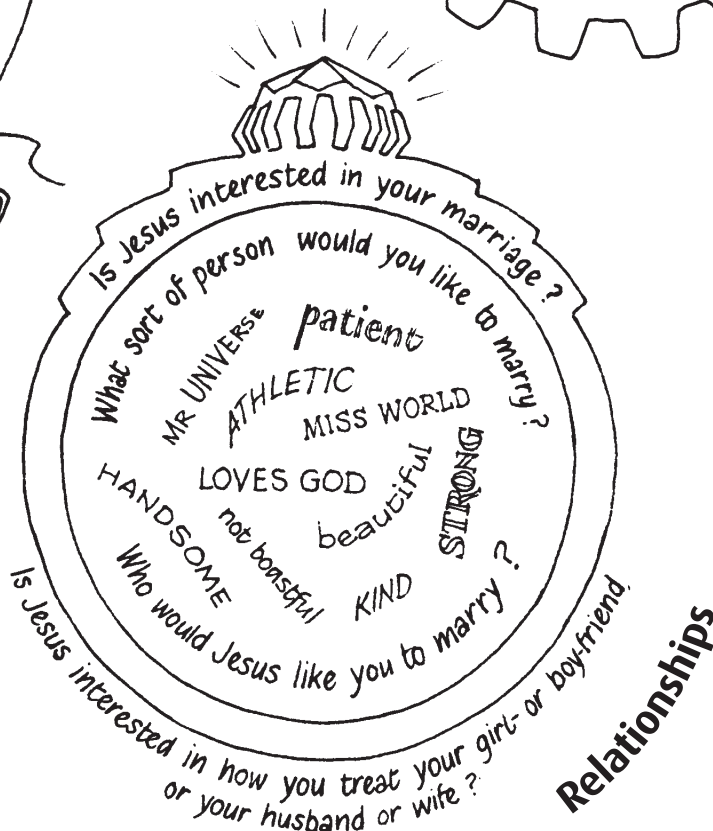 Is Jesus interested in your marriage?
What sort of person would you like to marry?
MR UNIVERSE
patient
ATHLETIC
MISS WORLD
LOVES GOD
beautiful
STRONG
HANDSOME
not boastful
KIND
Who would Jesus like you to marry?
Is Jesus interested in how you treat your girl- or boy-friend,
or your husband or wife?
Relationships